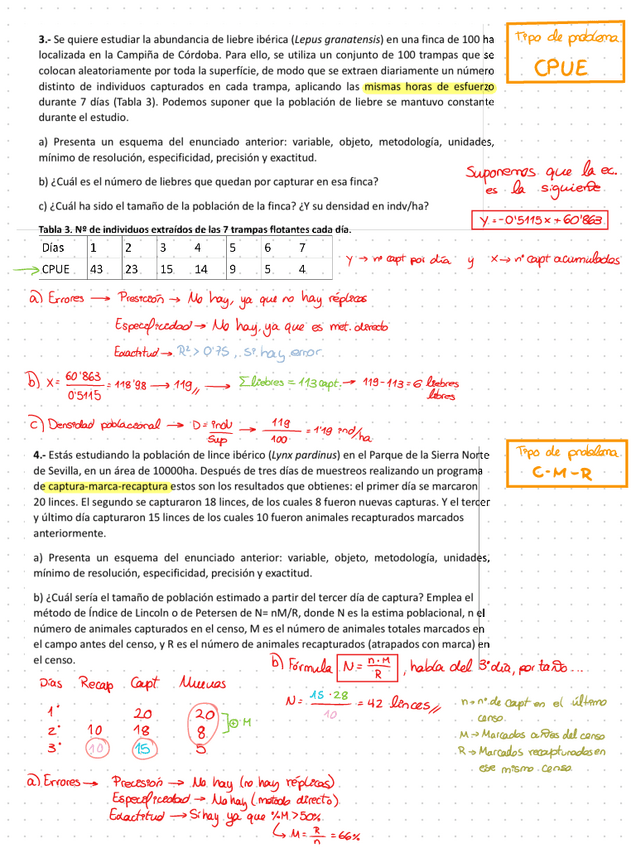 3.- Se quiere estudiar la abundancia de liebre ibérica (Lepus granatensis) en una finca de 100 ha
localizada en la Campiña de Córdoba. Para ello, se utiliza un conjunto de 100 trampas que se
colocan aleatoriamente por toda la superfície, de modo que se extraen diariamente un número
distinto de individuos capturados en cada trampa, aplicando las mismas horas de esfuerzo
durante 7 días (Tabla 3). Podemos suponer que la población de liebre se mantuvo constante
durante el estudio.
Tipo de problema
CPUE
a) Presenta un esquema del enunciado anterior: variable, objeto, metodología, unidades,
mínimo de resolución, especificidad, precisión y exactitud.
b) ¿Cuál es el número de liebres que quedan por capturar en esa finca?
c) ¿Cuál ha sido el tamaño de la población de la finca? ¿Y su densidad en indv/ha?
Suponemos que la ec.
es la siguiente
Y=-0'5115x+60'863
Tabla 3. Nº de individuos extraídos de las 7 trampas flotantes cada día.
Días 1 2 3 4 5 6 7
CPUE 43 23 15 14 9 5 4
Y → nº capt por día y X → nº capt acumulados
a) Errores → Precisión → No hay, ya que no hay réplicas
Especificidad → No hay, ya que es met. directo
Exactitud → R² > 0'75, sí hay error.
b) X = 60'863 / 0'5115 = 118'98 → 119 → Σ liebres = 113 capt. → 119-113 = 6 liebres
libres
c) Densidad poblacional → D = indv / Sup → 119 / 100 = 1'19 ind/ha
4.- Estás estudiando la población de lince ibérico (Lynx pardinus) en el Parque de la Sierra Norte
de Sevilla, en un área de 10000ha. Después de tres días de muestreos realizando un programa
de captura-marca-recaptura estos son los resultados que obtienes: el primer día se marcaron
20 linces. El segundo se capturaron 18 linces, de los cuales 8 fueron nuevas capturas. Y el tercer
y último día capturaron 15 linces de los cuales 10 fueron animales recapturados marcados
anteriormente.
Tipo de problema
C-M-R
a) Presenta un esquema del enunciado anterior: variable, objeto, metodología, unidades,
mínimo de resolución, especificidad, precisión y exactitud.
b) ¿Cuál sería el tamaño de población estimado a partir del tercer día de captura? Emplea el
método de Índice de Lincoln o de Petersen de N= nM/R, donde N es la estima poblacional, n el
número de animales capturados en el censo, M es el número de animales totales marcados en
el campo antes del censo, y R es el número de animales recapturados (atrapados con marca) en
el censo.
b) Fórmula N = n·M / R, habla del 3º día, por tanto...
Días Recap Capt Nuevas
1º 20 20
2º 10 18 8
3º 10 15 5
⊕ M
N = 15 · 28 / 10 = 42 linces
n → nº de capt en el último
censo.
M → Marcados antes del censo
R → Marcados recapturados en
ese mismo censo
a) Errores → Precisión → No hay (no hay réplicas)
Especificidad → No hay (método directo)
Exactitud → Sí hay ya que %M > 50%
↳ M = R / n = 66%